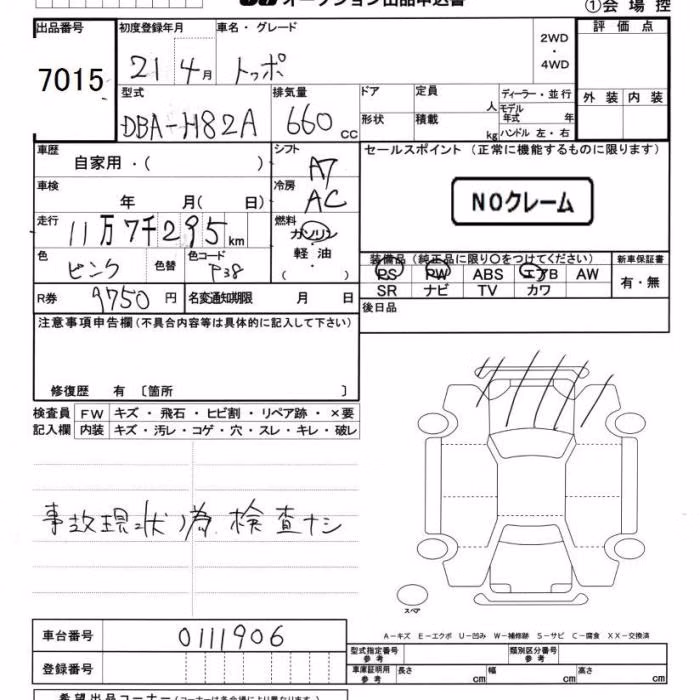 オークション出品申込書
①会場控
出品番号 7015
初度登録年月 21 4月
車名・グレード トッポ
2WD・4WD
評価点
外装 内装
型式 DBA-H82A
排気量 660 cc
ドア
定員 人
ディーラー・並行
形状
積載 kg
モデル年式 年
ハンドル 左・右
車歴 自家用・( )
シフト A7
セールスポイント（正常に機能するものに限ります）
NOクレーム
車検 年 月( 日)
冷房 AC
走行 11万7千295km
燃料 ガソリン・軽油・( )
色 ピンク
色替
色コード P38
装備品（純正品に限り○をつけてください）
新車保証書
PS PW ABS エアB AW
有・無
SR ナビ TV カワ
R券 9750円
名変通知期限 月 日
後日品
注意事項申告欄（不具合内容等は具体的に記入して下さい）
修復歴 有 〔箇所 〕
検査員 FW キズ・飛石・ヒビ割・リペア跡・×要
記入欄 内装 キズ・汚レ・コゲ・穴・スレ・キレ・破レ
事故現状ノ為 検査ナシ
スペア
A－キズ E－エクボ U－凹み W－補修跡 S－サビ C－腐食 XX－交換済
車台番号 0111906
型式指定番号 参考
類別区分番号 参考
登録番号
車庫証明用 参考 長さ cm 幅 cm 高さ cm
希望出品コーナー（コーナーは各会場により異なります）